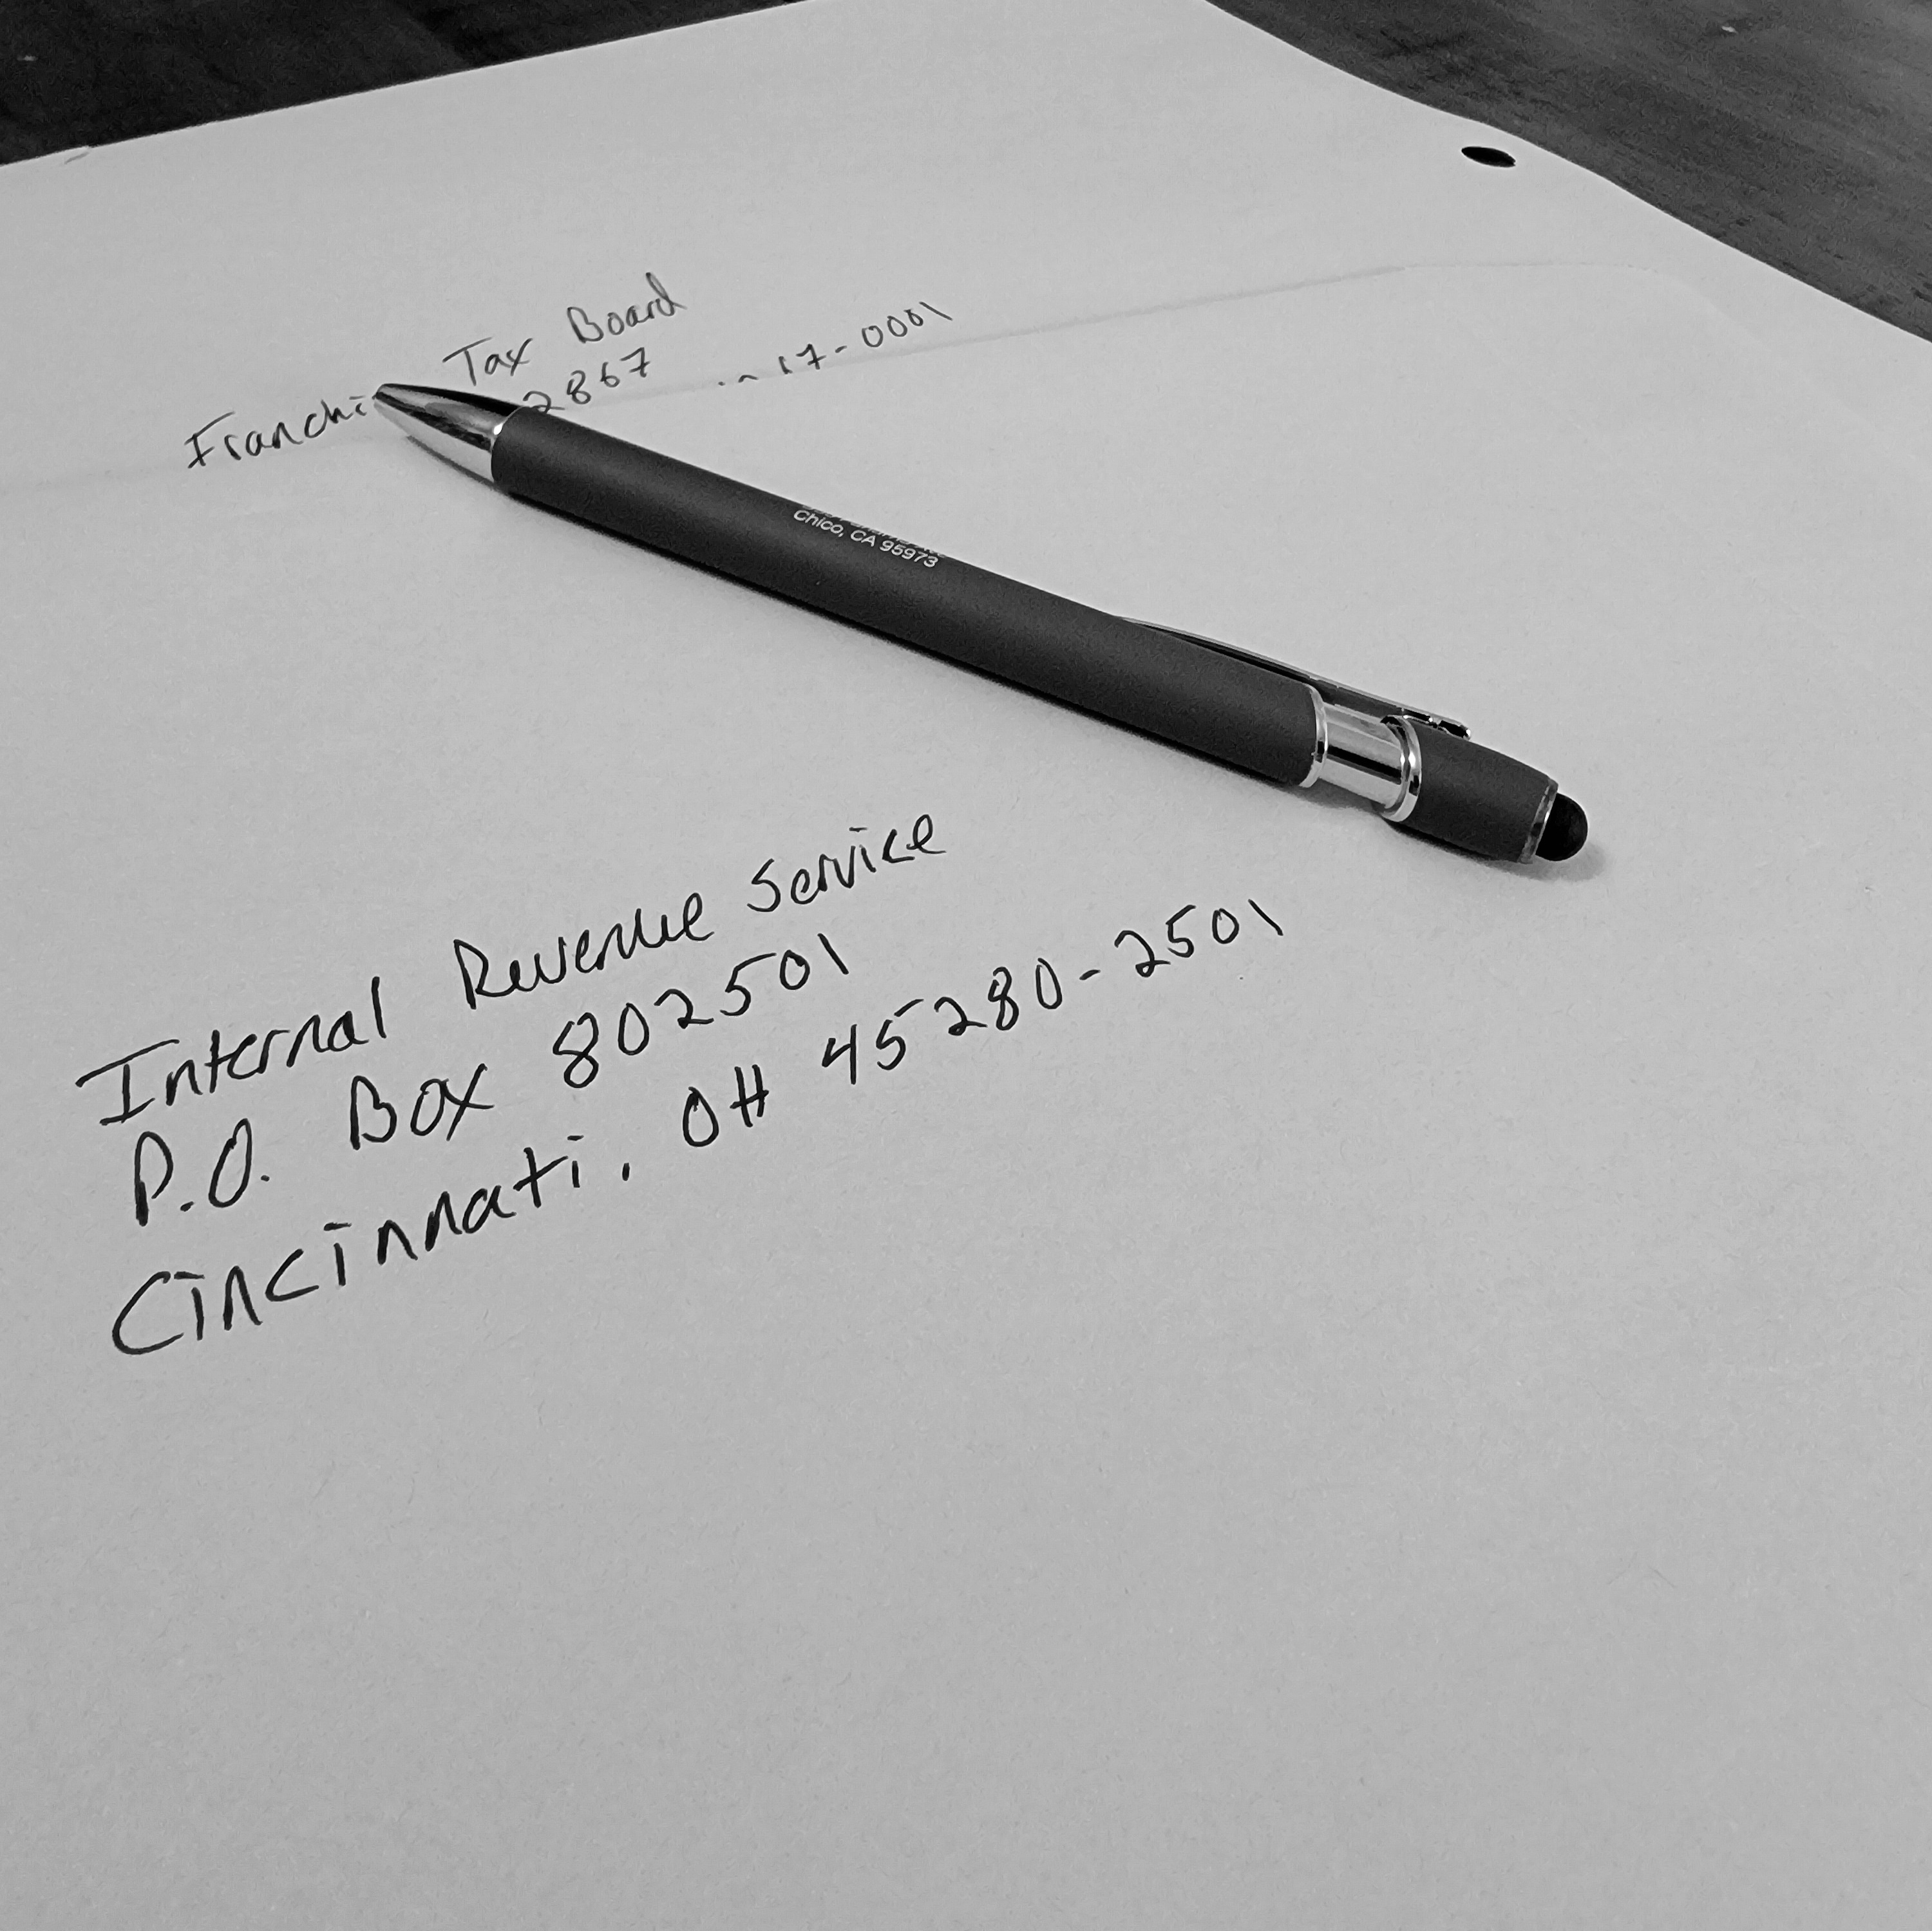 Franchi Tax Board
2867
17-0001
Chico, CA 95973
Internal Revenue Service
P.O. Box 802501
Cincinnati, OH 45280-2501